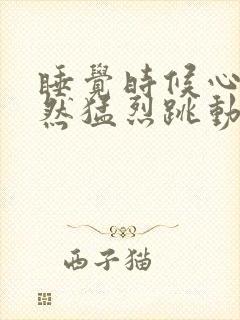 睡覺時候心
然猛烈跳動
西子猫